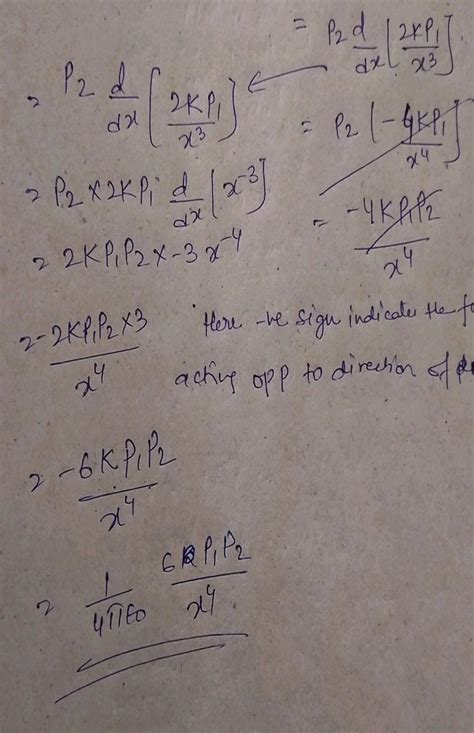 = P₂ d/dx [2KP₁/x³]
= P₂ d/dx [2KP₁/x³]
= P₂ [-4KP₁/x⁴]
= P₂ × 2KP₁ d/dx [x⁻³]
= -4KP₁P₂/x⁴
= 2KP₁P₂ × -3 x⁻⁴
= -2KP₁P₂ × 3/x⁴
Here -ve sign indicates the
acting opp to direction of
= -6KP₁P₂/x⁴
= 1/4π∈₀ 6P₁P₂/x⁴